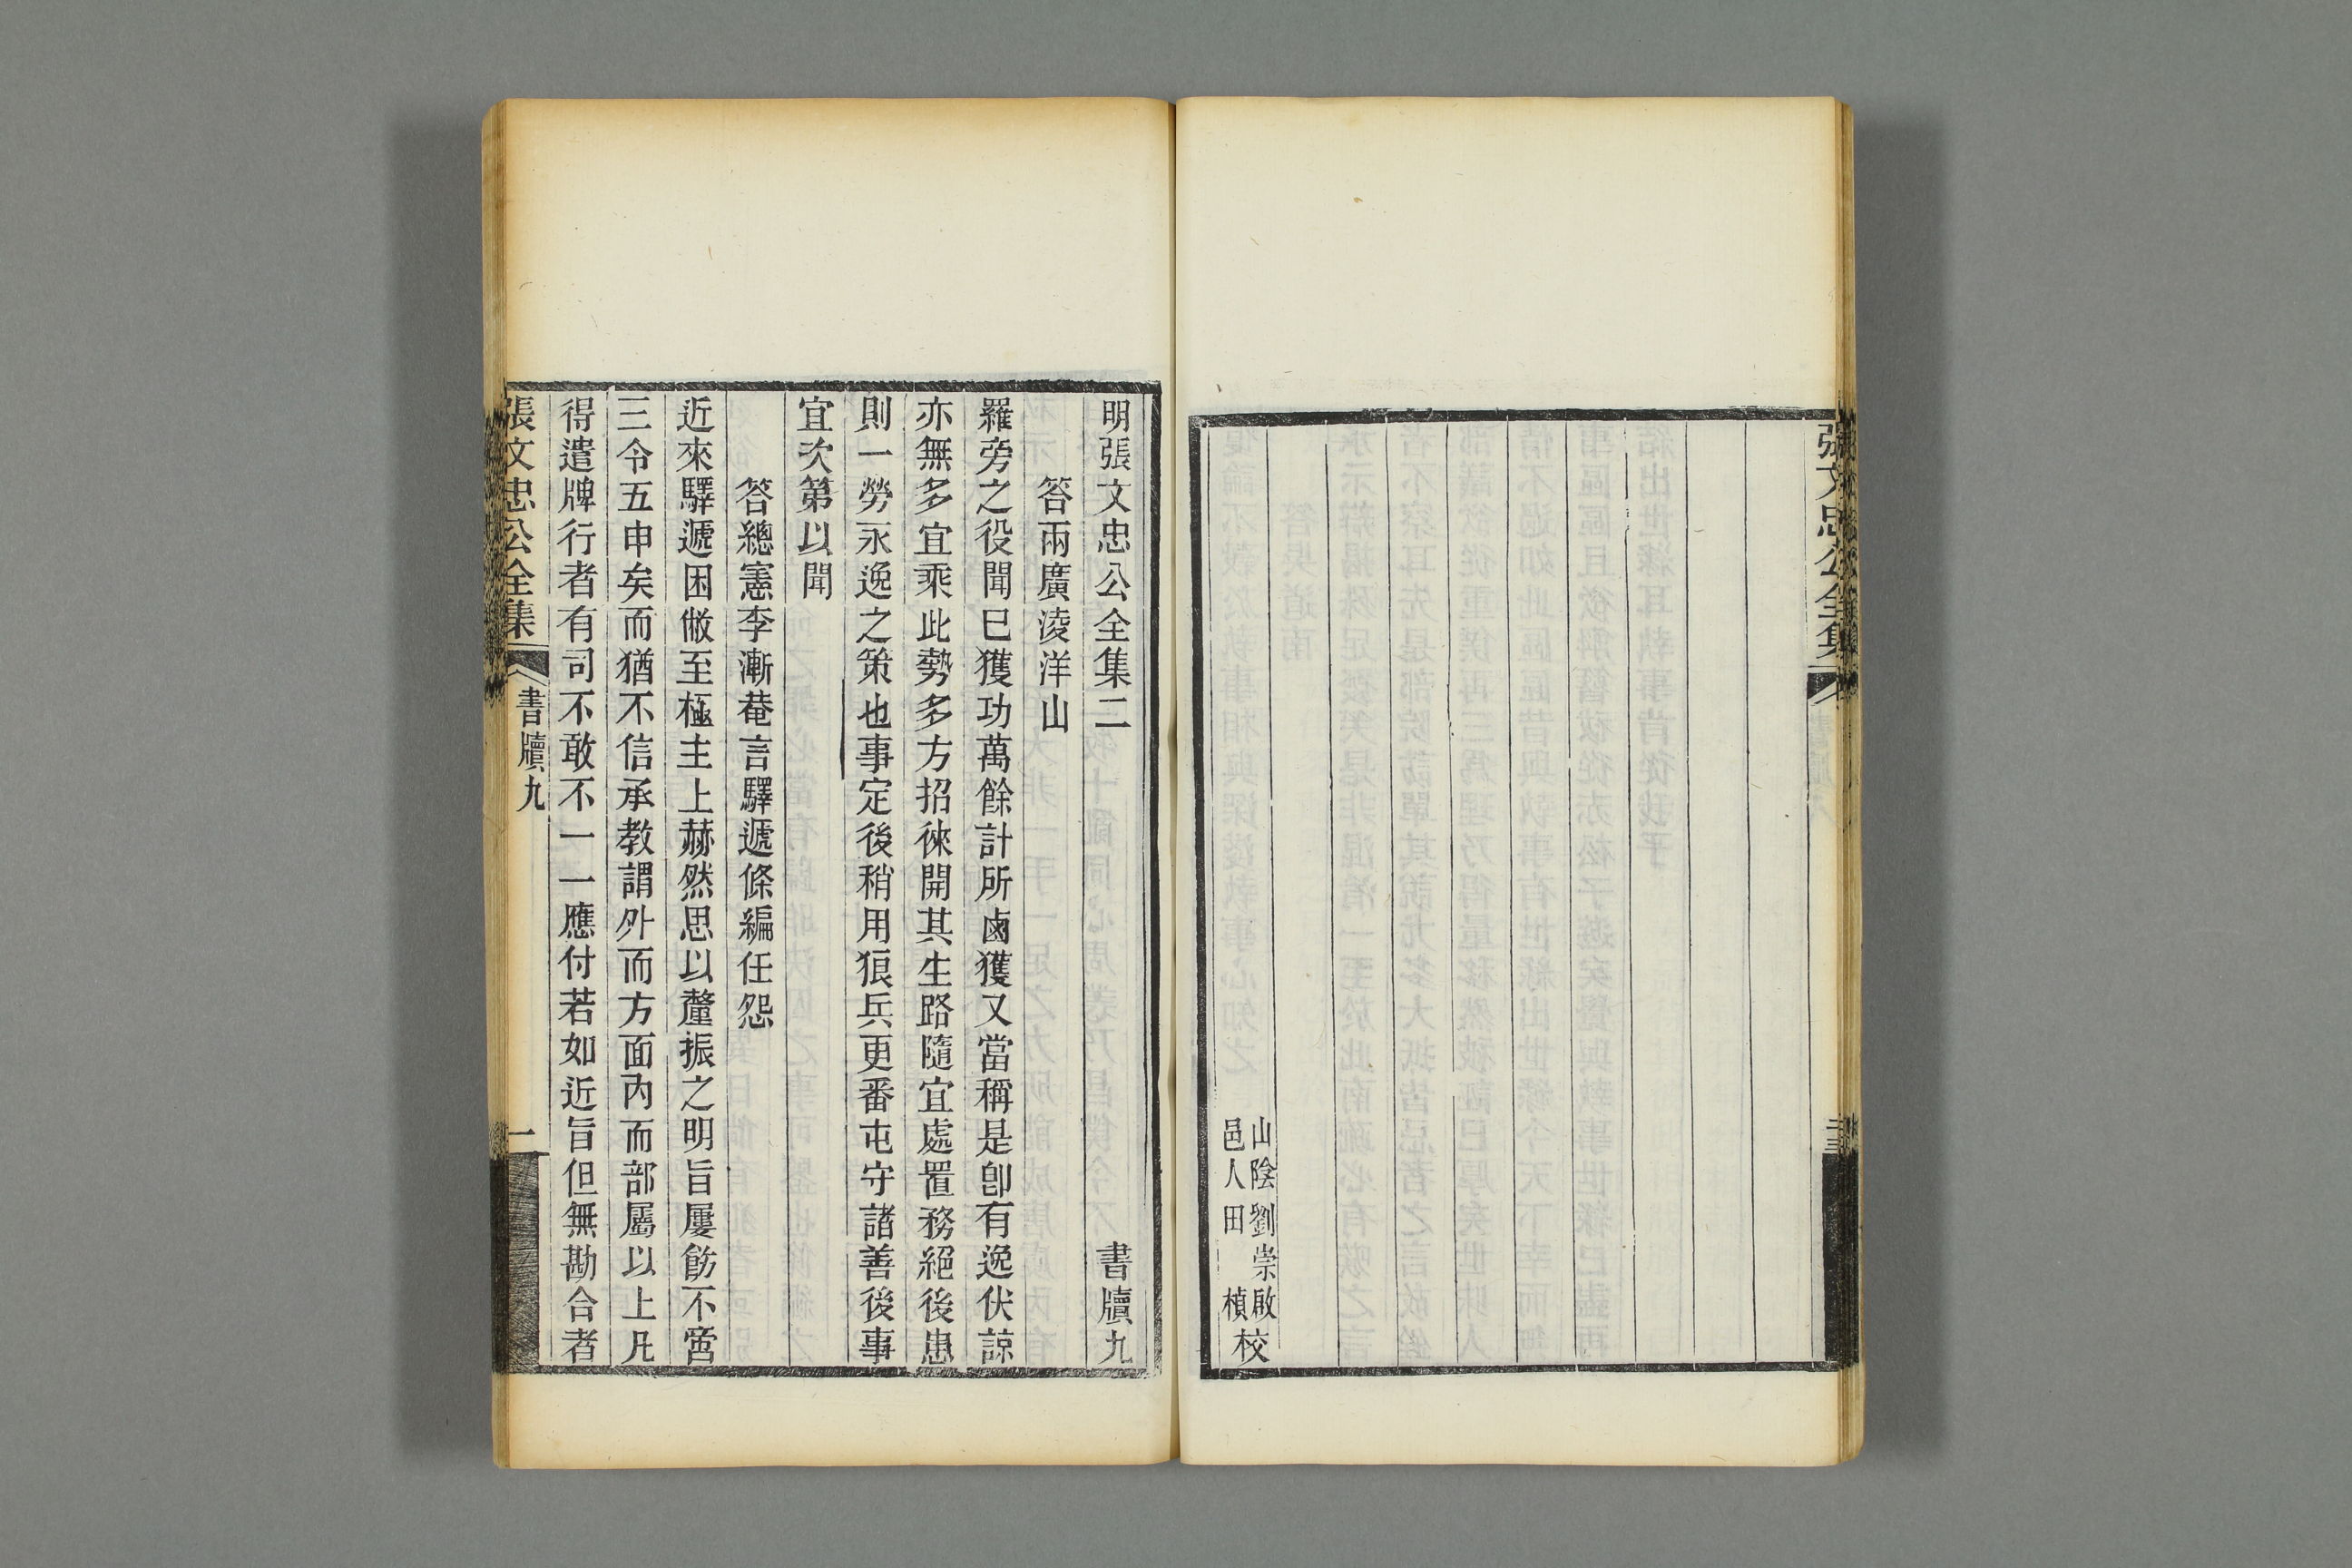 張文忠公全集
山陰劉崇啟
邑人田楨
校
明張文忠公全集二 書牘九
答兩廣淩洋山
羅旁之役聞已獲功萬餘計所鹵獲又當稱是卽有逸伏諒
亦無多宜乘此勢多方招徠開其生路隨宜處置務絕後患
則一勞永逸之策也事定後稍用狼兵更番屯守諸善後事
宜次第以聞
答總憲李漸菴言驛遞條編任怨
近來驛遞困敝至極主上赫然思以釐振之明旨屢飭不啻
三令五申矣而猶不信承教謂外而方面內而部屬以上凡
得遣牌行者有司不敢不一一應付若如近旨但無勘合者
張文忠公全集 書牘九 一